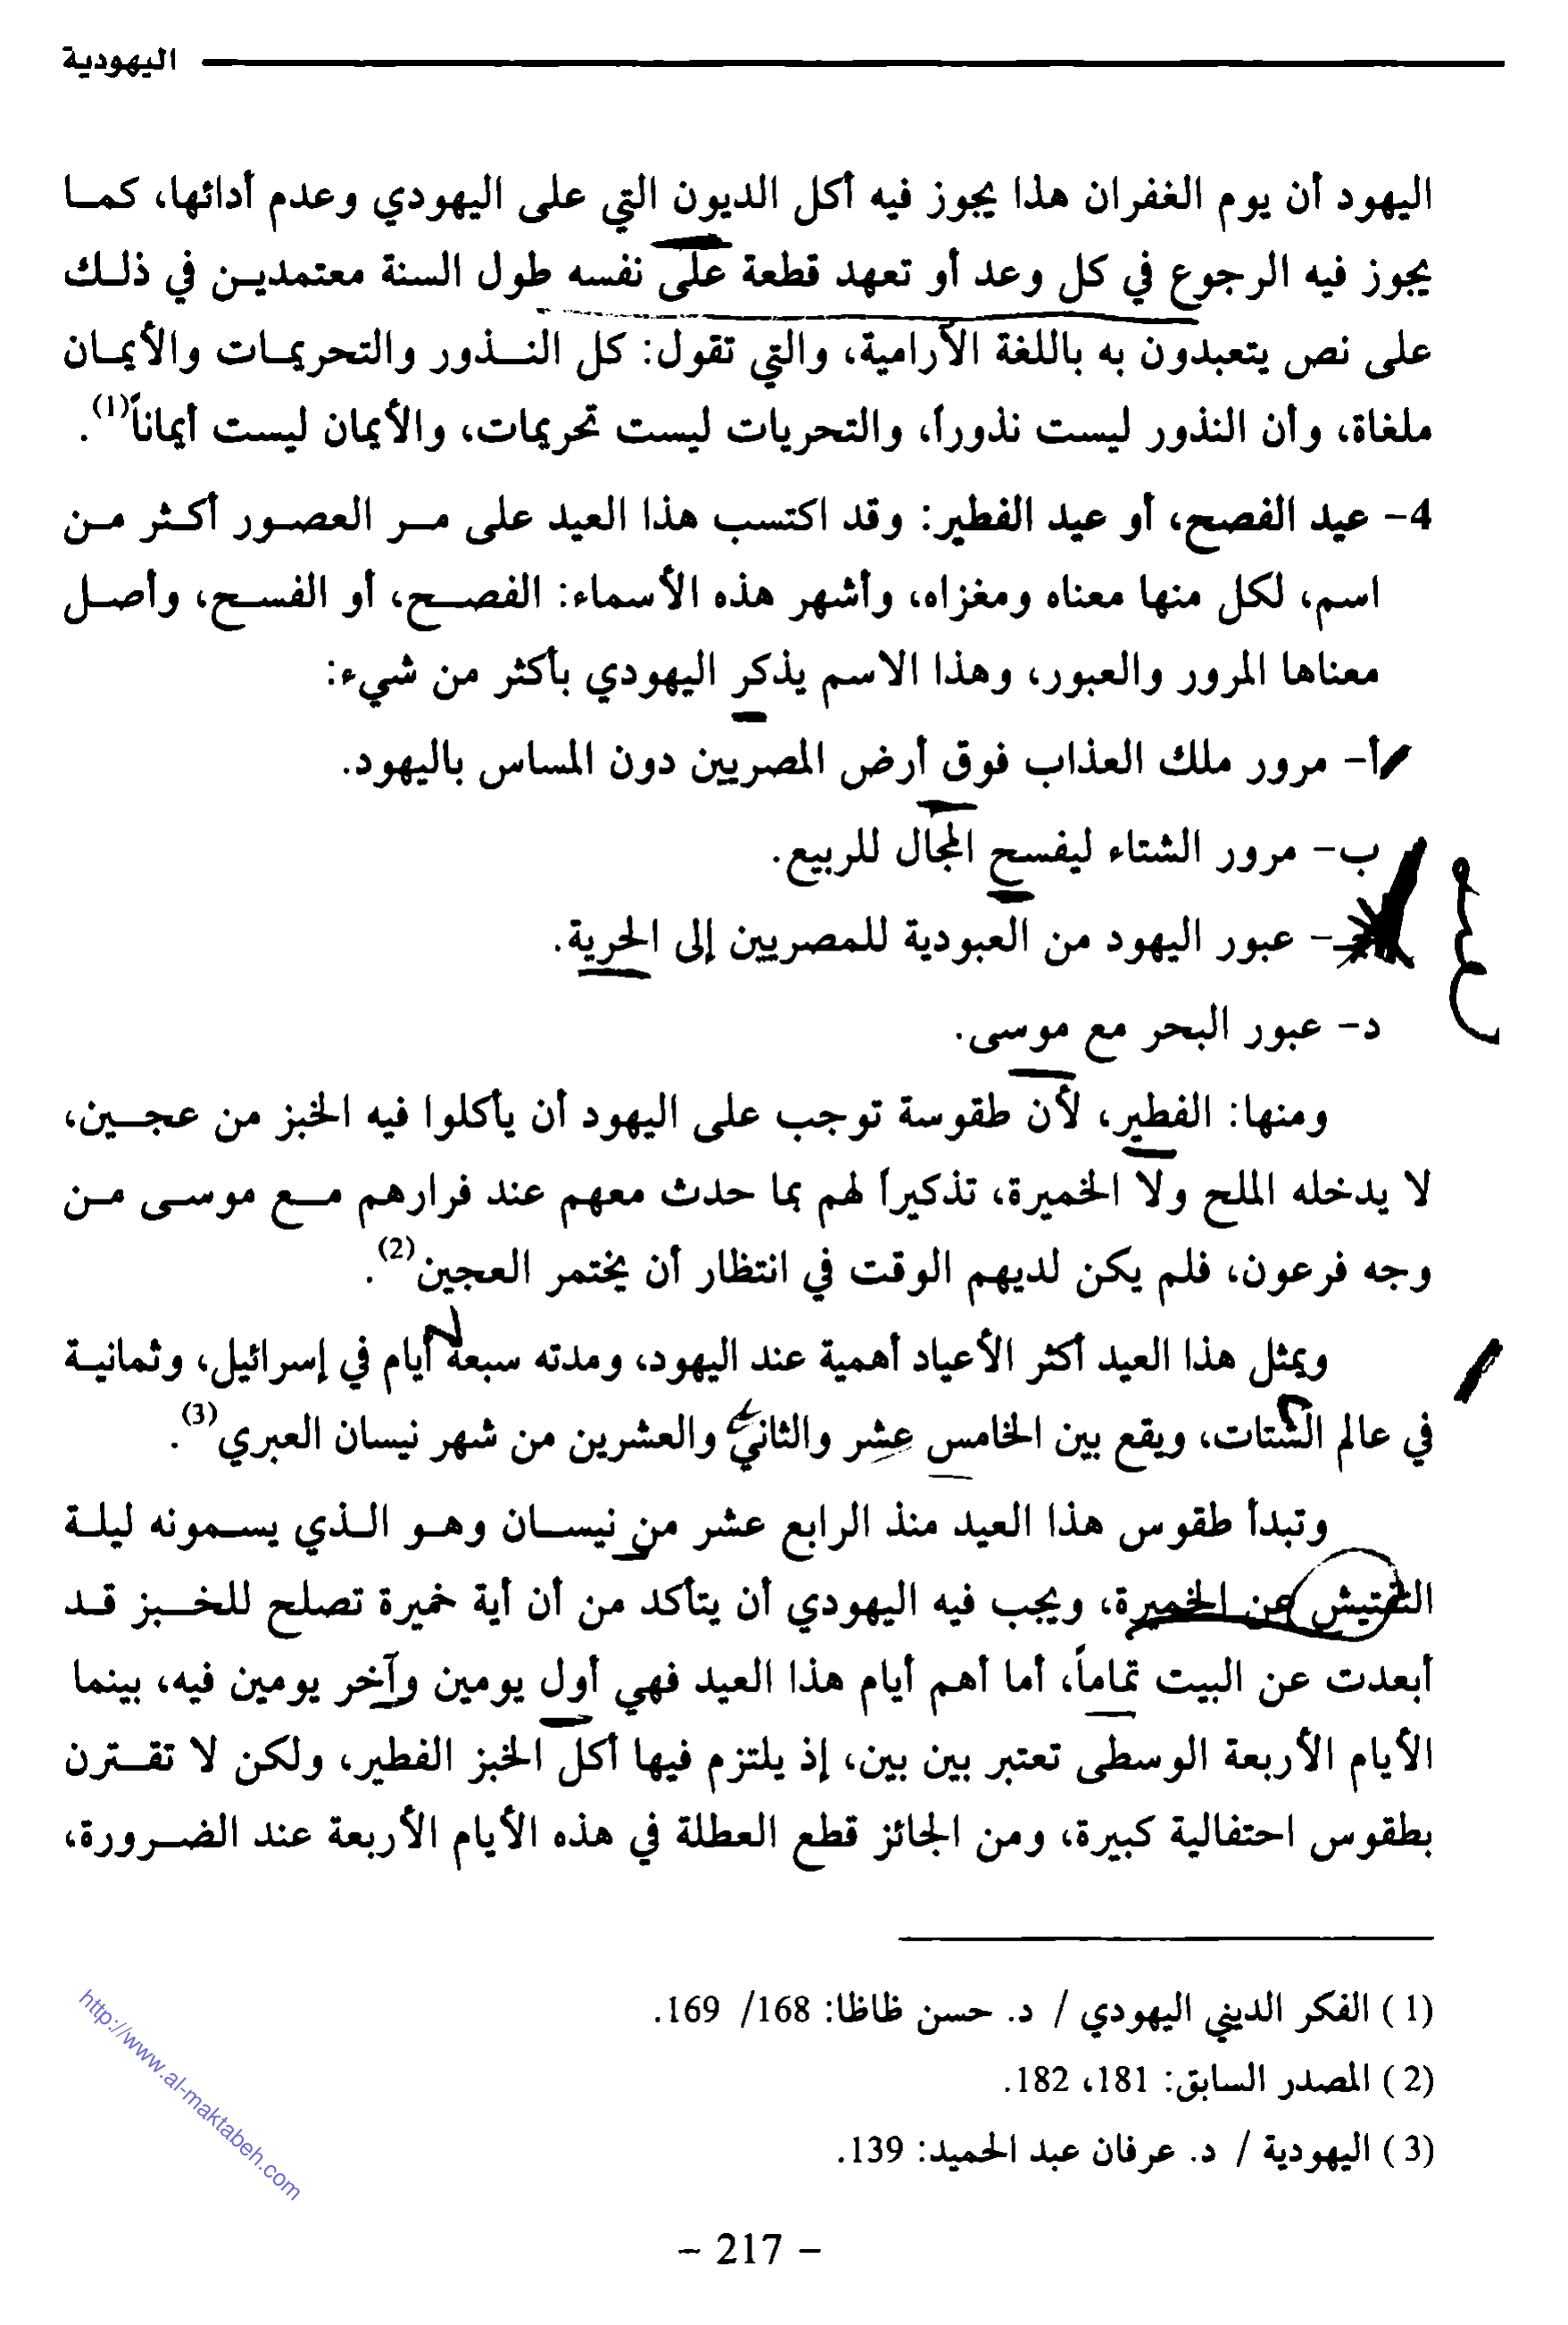 اليهودية
اليهود أن يوم الغفران هذا يجوز فيه أكل الديون التي على اليهودي وعدم أدائها، كمـا
يجوز فيه الرجوع في كل وعد أو تعهد قطعة على نفسه طول السنة معتمديـن في ذلـك
على نص يتعبدون به باللغة الآرامية، والتي تقول: كل النـذور والتحريمـات والأيمـان
ملغاة، وأن النذور ليست نذوراً، والتحريات ليست تحريمات، والأيمان ليست أيماناً(1).
4- عيد الفصح، أو عيد الفطير: وقد اكتسب هذا العيد على مـر العصـور أكـثر مـن
اسم، لكل منها معناه ومغزاه، وأشهر هذه الأسماء: الفصـح، أو الفسـح، وأصـل
معناها المرور والعبور، وهذا الاسم يذكر اليهودي بأكثر من شيء:
أ- مرور ملك العذاب فوق أرض المصريين دون المساس باليهود.
ب- مرور الشتاء ليفسح المجال للربيع.
- عبور اليهود من العبودية للمصريين إلى الحرية.
د- عبور البحر مع موسى.
ومنها: الفطير، لأن طقوسة توجب على اليهود أن يأكلوا فيه الخبز من عجـين،
لا يدخله الملح ولا الخميرة، تذكيراً لهم بما حدث معهم عند فرارهم مـع موسـى مـن
وجه فرعون، فلم يكن لديهم الوقت في انتظار أن يختمر العجين(2).
ويمثل هذا العيد أكثر الأعياد أهمية عند اليهود، ومدته سبعة أيام في إسرائيل، وثمانيـة
في عالم الشتات، ويقع بين الخامس عشر والثاني والعشرين من شهر نيسان العبري(3).
وتبدأ طقوس هذا العيد منذ الرابع عشر من نيسـان وهـو الـذي يسـمونه ليلـة
التفتيش عن الخميرة، ويجب فيه اليهودي أن يتأكد من أن أية خميرة تصلح للخـبز قـد
أبعدت عن البيت تماماً، أما أهم أيام هذا العيد فهي أول يومين وآخر يومين فيه، بينما
الأيام الأربعة الوسطى تعتبر بين بين، إذ يلتزم فيها أكل الخبز الفطير، ولكن لا تقـترن
بطقوس احتفالية كبيرة، ومن الجائز قطع العطلة في هذه الأيام الأربعة عند الضـرورة،
(1) الفكر الديني اليهودي / د. حسن ظاظا: 168/ 169.
(2) المصدر السابق: 181، 182.
(3) اليهودية / د. عرفان عبد الحميد: 139.
http://www.al-maktabeh.com
- 217 -